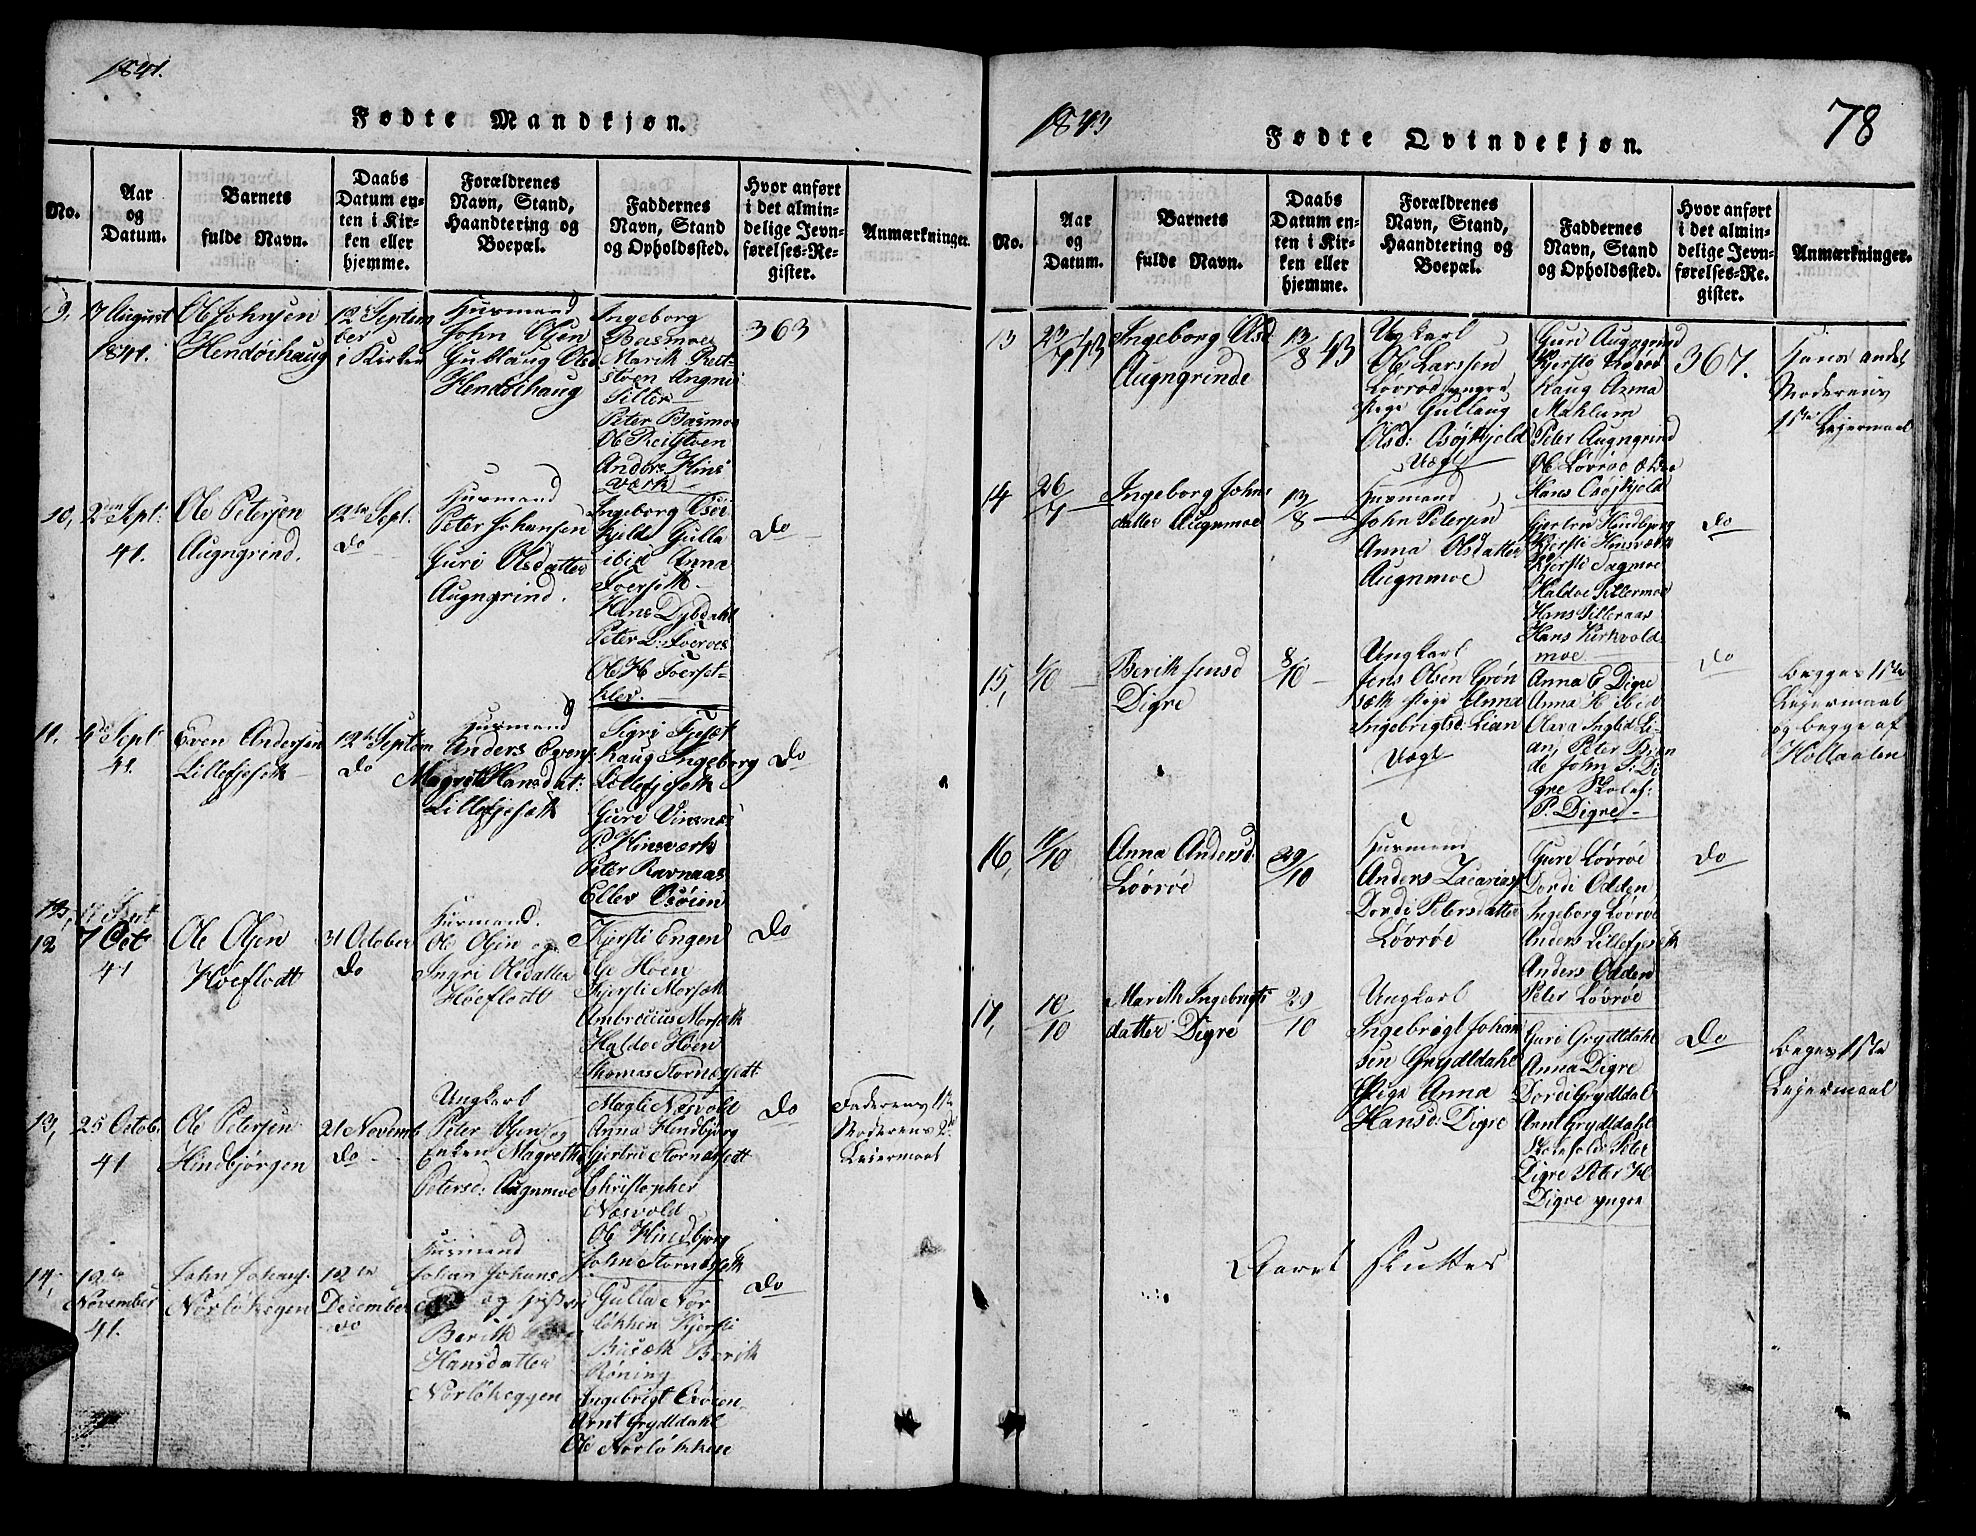 1841.
Fødte Mandkjøn.
No.
Aar
og
Datum.
Barnets
fulde Navn.
Daabs
Datum en-
ten i Kir-
ken eller
hjemme.
Forældrenes
Navn, Stand,
Haandtering og
Boepæl.
Faddernes
Navn, Stand
og Opholdssted.
Hvor anført
i det almin-
delige Jevn-
førelses-Re-
gister.
Anmærkninger.
9,
7 August
1841.
Ole Johnsen
Hendøihaug
12te Septem
ber
i Kirken
Husmand
John Olsen
Gullaug Olsd
Hendøihaug
Ingeborg
Basmoe
Marit Reit-
støen Angne
Tiller
Peter Basmoe
Ole Reitstøen
Anders Hins
værk
363
10,
2den Sept:
41.
Ole Petersen
Augngrind.
12te Sept.
do
Husmand
Peter Johansen
Guri Olsdatter
Augngrind.
Ingeborg Osøi
kjeld Gulla
ibid Anna
Foerseth
Hans Dybdahl
Peter L: Foerset
Ole H Foerset-
klev.
do
11.
4de Sept
41
Even Andersen
Lillefjeseth
12te Septem
do
Husmand
Anders Evens
Magrit Hansdat:
Lillefjeseth
Sigri Fjeset
Raug Ingeborg
Lillefjeseth
Guri Vinsnes
P. Hinsværk
Peter Ravnaas
Ellev Osøien
do
12
7 Oct
41
Ole Olsen
Hoeflodt
31 October
do
Husmand.
Ole Olsen og
Ingri Olsdatter
Høeflodt
Kjersti Engen
Else Høen
Kjersti Morseth
Ambrocius Morseth
Haldoe Høen
Thomas Stornesedt
do
13,
25 Octob.
41
Ole Petersen
Hindbjørgen
21 Novemb
do
Ungkarl
Peter Olsen og
Enken Magrethe
Peterse: Augnmoe
Magli Næsvold
Anna Hindbjørg
Gjertrud Stornesedt
Christopher
Næsvold
Ole Hindbjørg
John Stornæseth
do
Faderens 1ste
Moderens 2det
Leiermaal
14,
12te
November
41.
John Johans.
Norløkegen
12te
December
do
Husmand
Johan Johans
og
Berith
Hansdatter
Norløkeggen
Gulla Nor
løkken Kjersti
Buseth Berith
Røning
Ingebrigt Osøien
Arnt Grydtdahl
Ole Norløkken
do
1843
78
Fødte Qvindekjøn.
No.
Aar
og
Datum.
Barnets
fulde Navn.
Daabs
Datum en-
ten i Kir-
ken eller
hjemme.
Forældrenes
Navn, Stand,
Haandtering og
Boepæl.
Faddernes
Navn, Stand
og Opholdssted.
Hvor anført
i det almin-
delige Jevn-
førelses-Re-
gister.
Anmærkninger.
13
23/7 43
Ingeborg Olsd
Augngrinde
13/8 43
Ungkarl
Ole Larssen
Løvrød yngre
Pige Gullaug
Olsd: Osøjkjeld
Uægt
Guri Augngrind
Kjersti Løvrø
Raug Anna
Mæhlum
Peter Augngrind
Ole Løvrøe ældre
Hans Osøjkjeld
367.
Hans andet
Moderens
1ste Leiermaal
14
26/7
Ingeborg Johns
datter Augnmoe
13/8
Husmand
John Petersen
Anna Olsdatter
Augnmoe
Gjertru Hindbjørg
Kjersti Hinsværk
Kjersti Dagmoe
Haldoe Tillermoe
Hans Tilleraas
Hans Kirkvold
moe
do
15,
1/10
Berith Jensd
Digre
8/10
Ungkarl
Jens Olsen Grøn
sæth Pige Anna
Ingebrigtsd. Lian
Uægt
Anna E Digre
Anna H ibid
Olara Ingbd Li-
an, Peter Brin
de John P. Di-
gre
P. Digre
do
begges 1ste
Leiermaal
og begge af
Holtaalen
16,
11/10
Anna Andersd:
Løvrøe
29/10
Husmand
Anders Zacarias
Dordi Petersdatter
Løvrøe
Guri Løvrøe
Dordi Odden
Ingeborg Løvrøe
Anders Lillefjeseth
Anders Odden
Peter Løvrøe
do
17,
10/10
Marith Ingebrigts
datter Digre
29/10
Ungkarl
Ingebrigt Johan
sen Grydtdahl
Pige Anna
Hansd: Digre
Guri Grydtdahl
Anna Digre
Dordi Grydtdal
Arnt Grydtdahl
Peter
Digre Peter H
Digre yngre
do
Begges 1ste
Leiermaal
Aaret sluttes